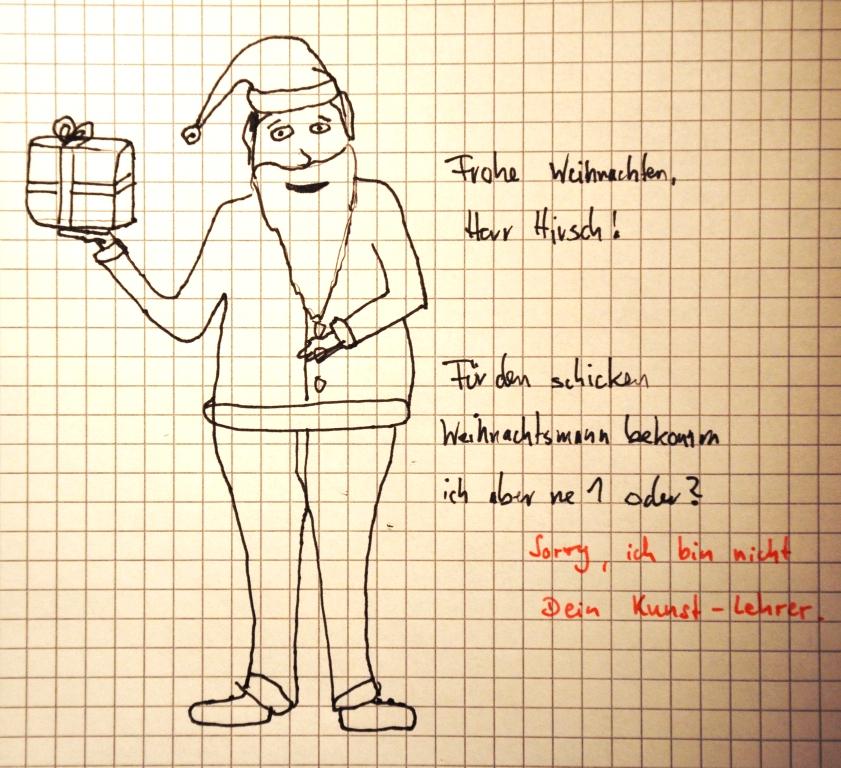 Frohe Weihnachten,
Herr Hirsch!
Für den schicken
Weihnachtsmann bekomm
ich aber ne 1 oder?
Sorry, ich bin nicht
Dein Kunst-Lehrer.